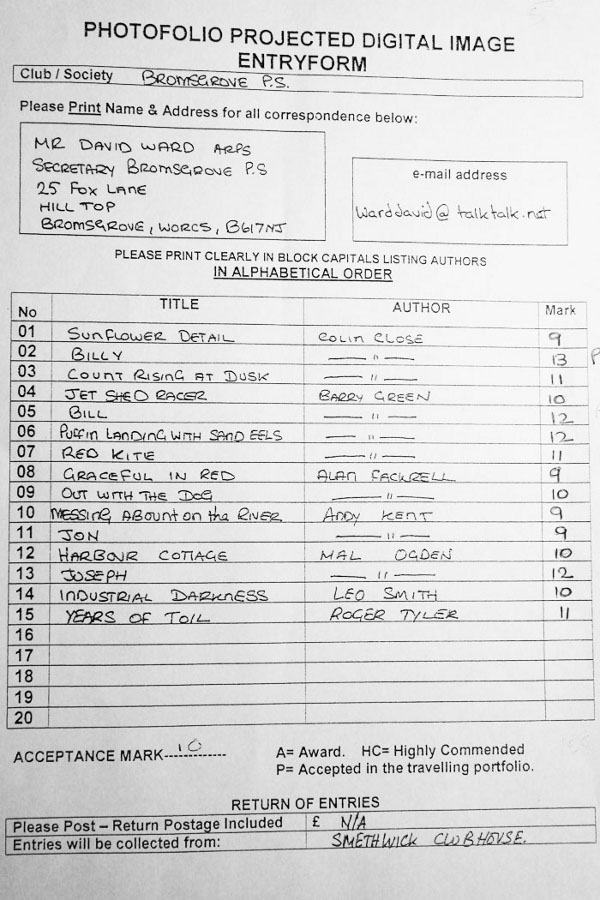 PHOTOFOLIO PROJECTED DIGITAL IMAGE
ENTRYFORM
Club / Society BROMSGROVE P.S.
Please Print Name & Address for all correspondence below:
MR DAVID WARD ARPS
SECRETARY BROMSGROVE P.S
25 FOX LANE
HILL TOP
BROMSGROVE, WORCS, B617NJ
e-mail address
warddavid@talktalk.net
PLEASE PRINT CLEARLY IN BLOCK CAPITALS LISTING AUTHORS
IN ALPHABETICAL ORDER
No TITLE AUTHOR Mark
01 SUNFLOWER DETAIL COLIN CLOSE 9
02 BILLY — " — 13 P
03 COUNT RISING AT DUSK — " — 11
04 JET SHED RACER BARRY GREEN 10
05 BILL — " — 12
06 PUFFIN LANDING WITH SAND EELS — " — 12
07 RED KITE — " — 11
08 GRACEFUL IN RED ALAN FACKRELL 9
09 OUT WITH THE DOG — " — 10
10 MESSING ABOUNT on the RIVER ANDY KENT 9
11 JON — " — 9
12 HARBOUR COTTAGE MAL OGDEN 10
13 JOSEPH — " — 12
14 INDUSTRIAL DARKNESS LEO SMITH 10
15 YEARS OF TOIL ROGER TYLER 11
16
17
18
19
20
ACCEPTANCE MARK--10---------- A= Award. HC= Highly Commended
P= Accepted in the travelling portfolio.
RETURN OF ENTRIES
Please Post – Return Postage Included £ N/A
Entries will be collected from: SMETHWICK CLUBHOUSE.